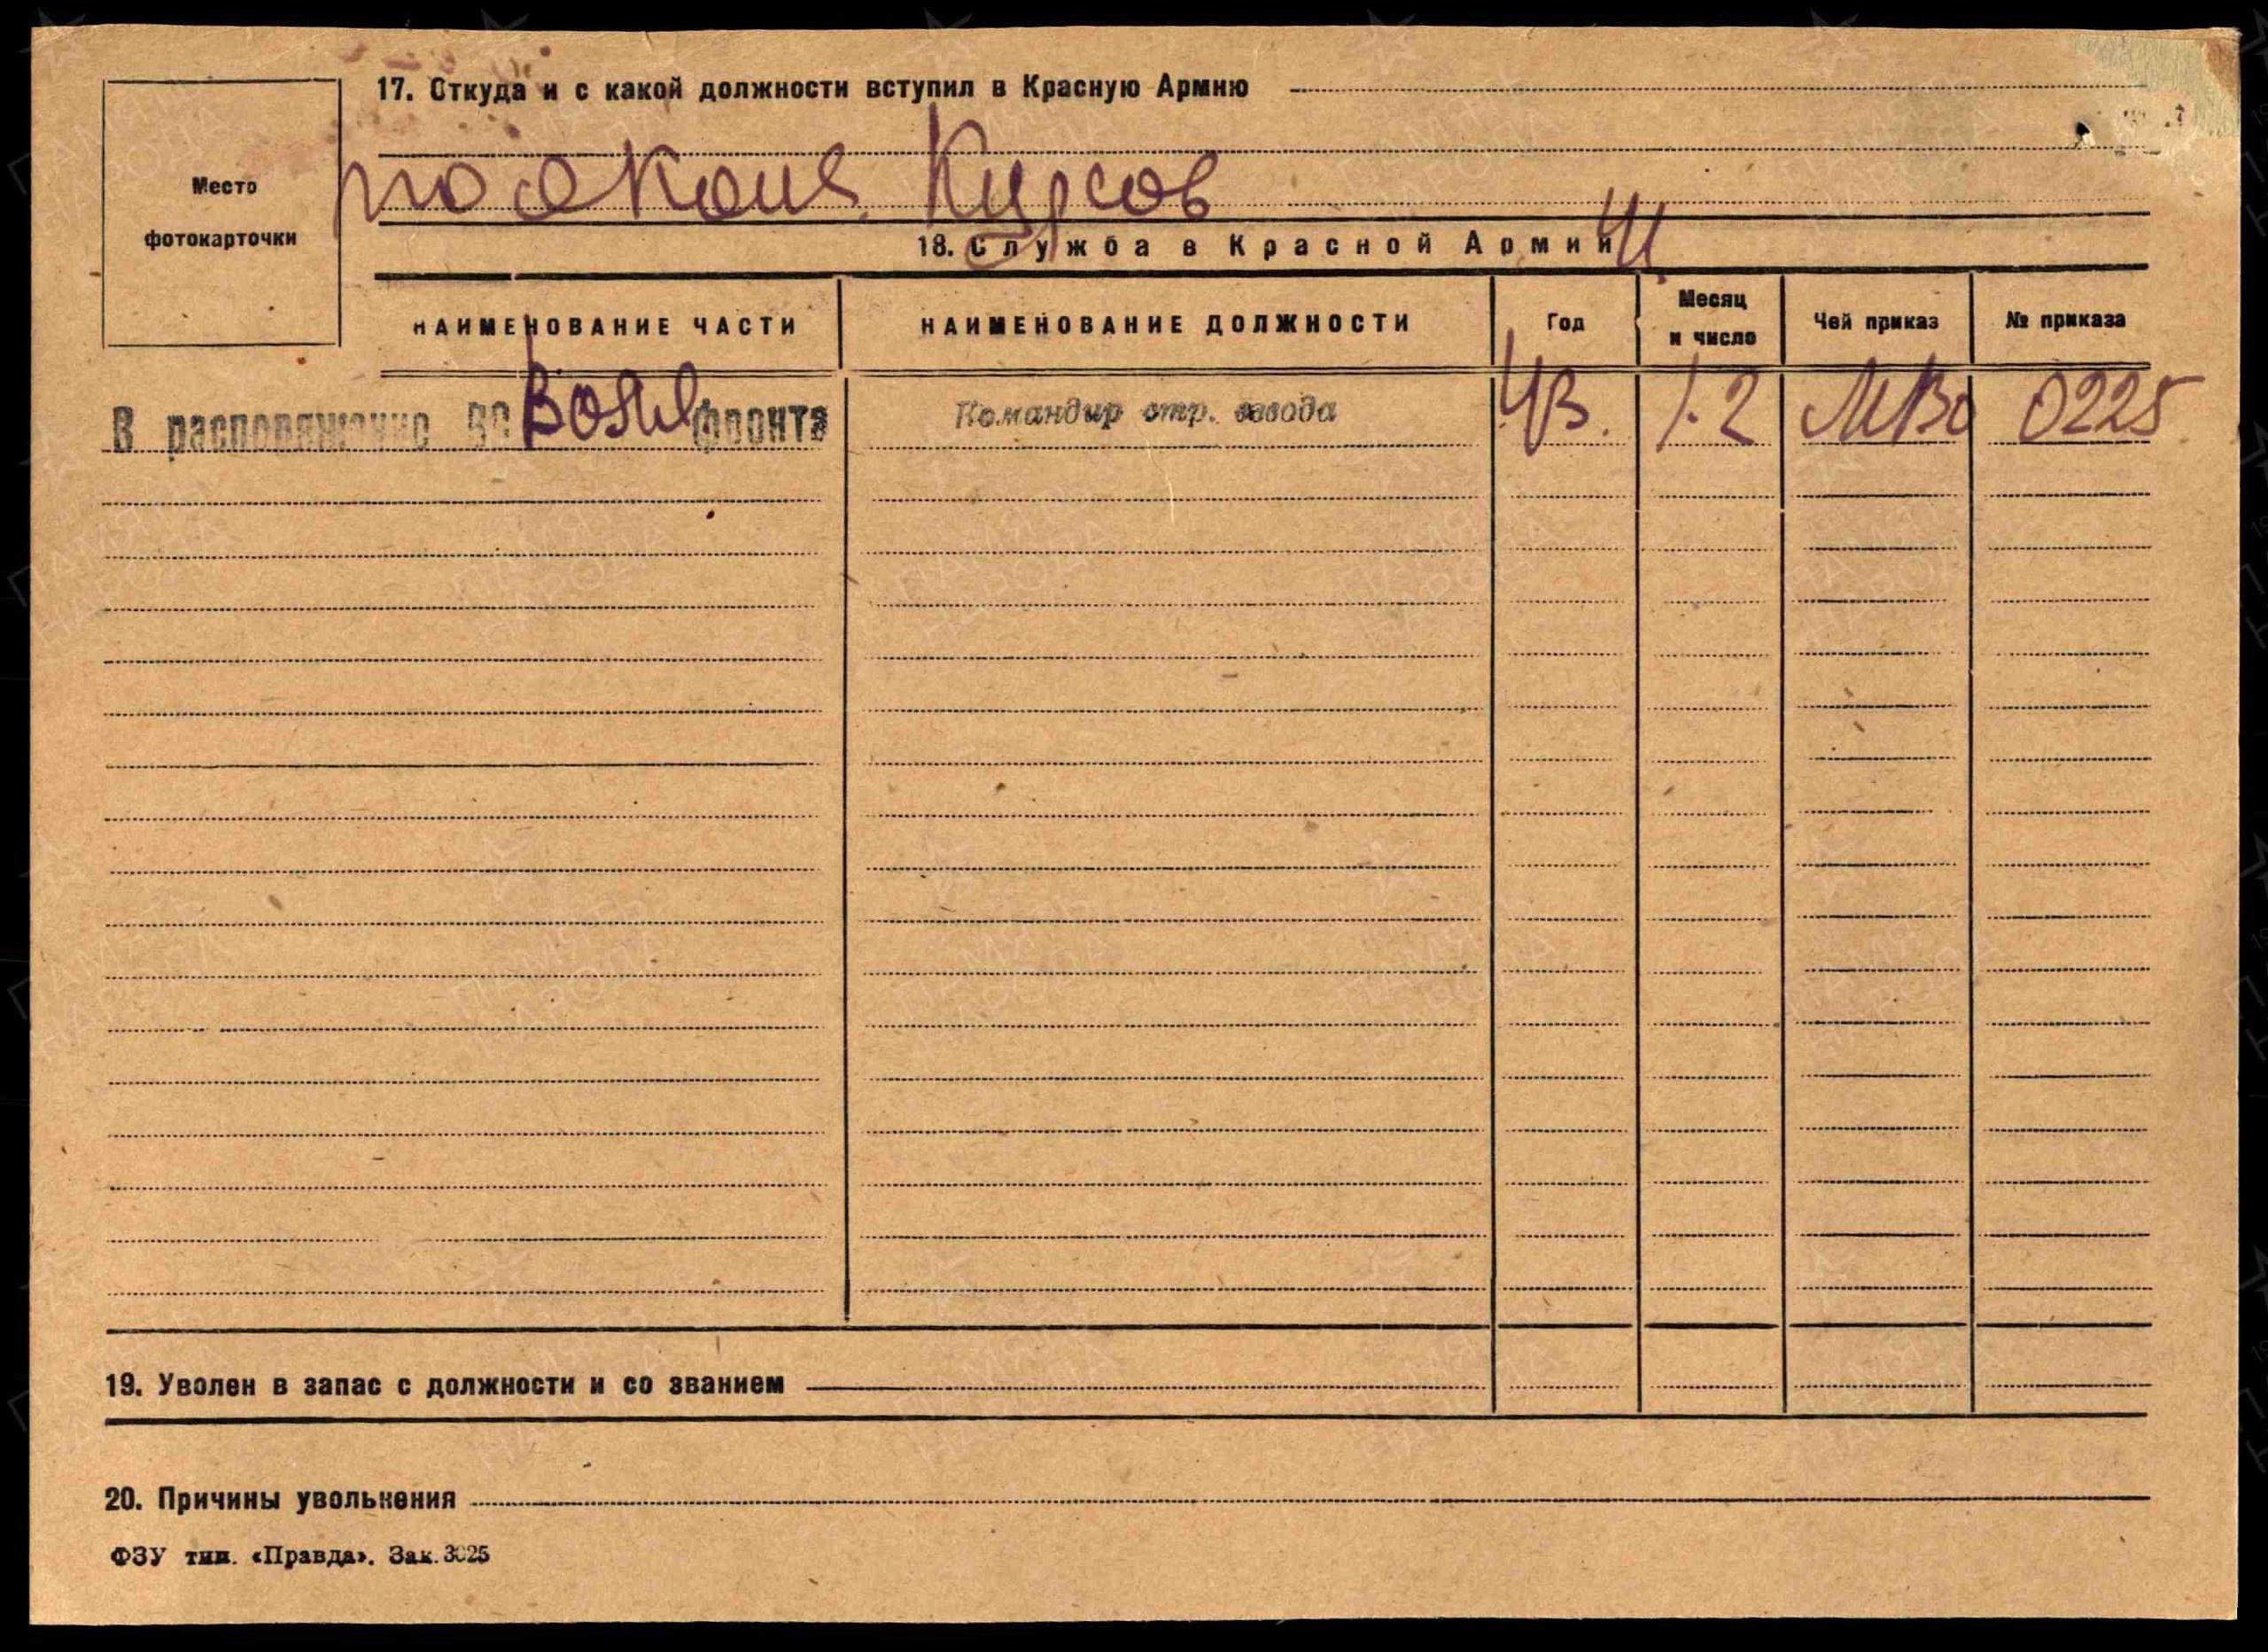 17. Откуда и с какой должности вступил в Красную Армию
Место
фотокарточки
по оконч. Курсов
18. Служба в Красной Армии
НАИМЕНОВАНИЕ ЧАСТИ
НАИМЕНОВАНИЕ ДОЛЖНОСТИ
Год
Месяц
и число
Чей приказ
№ приказа
В распоряжение фронта Командир стр. взвода 43. 1.2 МВо 0225
19. Уволен в запас с должности и со званием
20. Причины увольнения
ФЗУ тип. «Правда». Зак. 3025